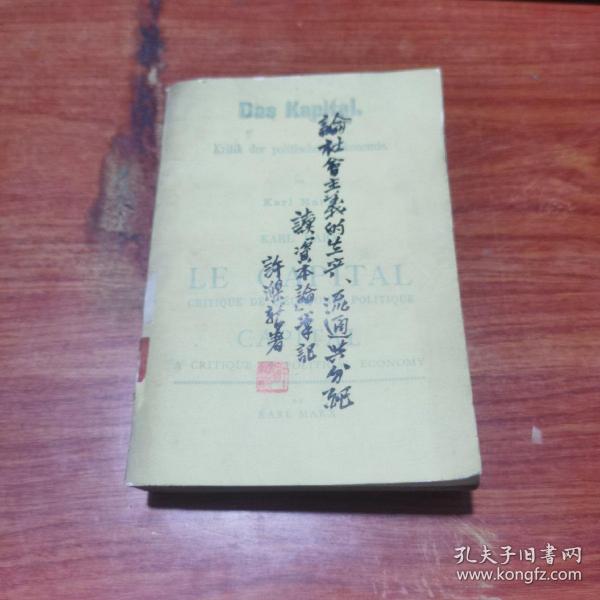 Das Kapital.
Kritik der politischen Oekonomie.
Karl Marx
KARL
LE CAPITAL
CRITIQUE DE L'ÉCONOMIE POLITIQUE
CAPITAL
A CRITIQUE OF POLITICAL ECONOMY
BY
KARL MARX
論社會主義的生产、流通与分配
讀《資本論》筆記
許滌新著
孔夫子旧书网
www.kongfz.com